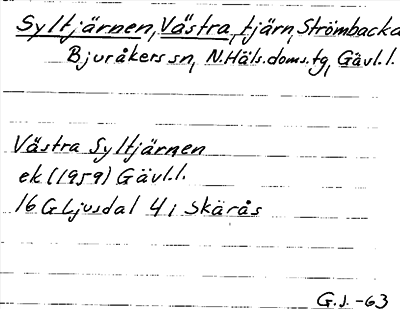 Syltjärnen, Västra, tjärn, Strömbacka
Bjuråkers sn, N.Häls.doms.tg, Gävl.l.
Västra Syltjärnen
ek (1959) Gävl.l.
16 G Ljusdal 4 i Skärås
G.J. -63